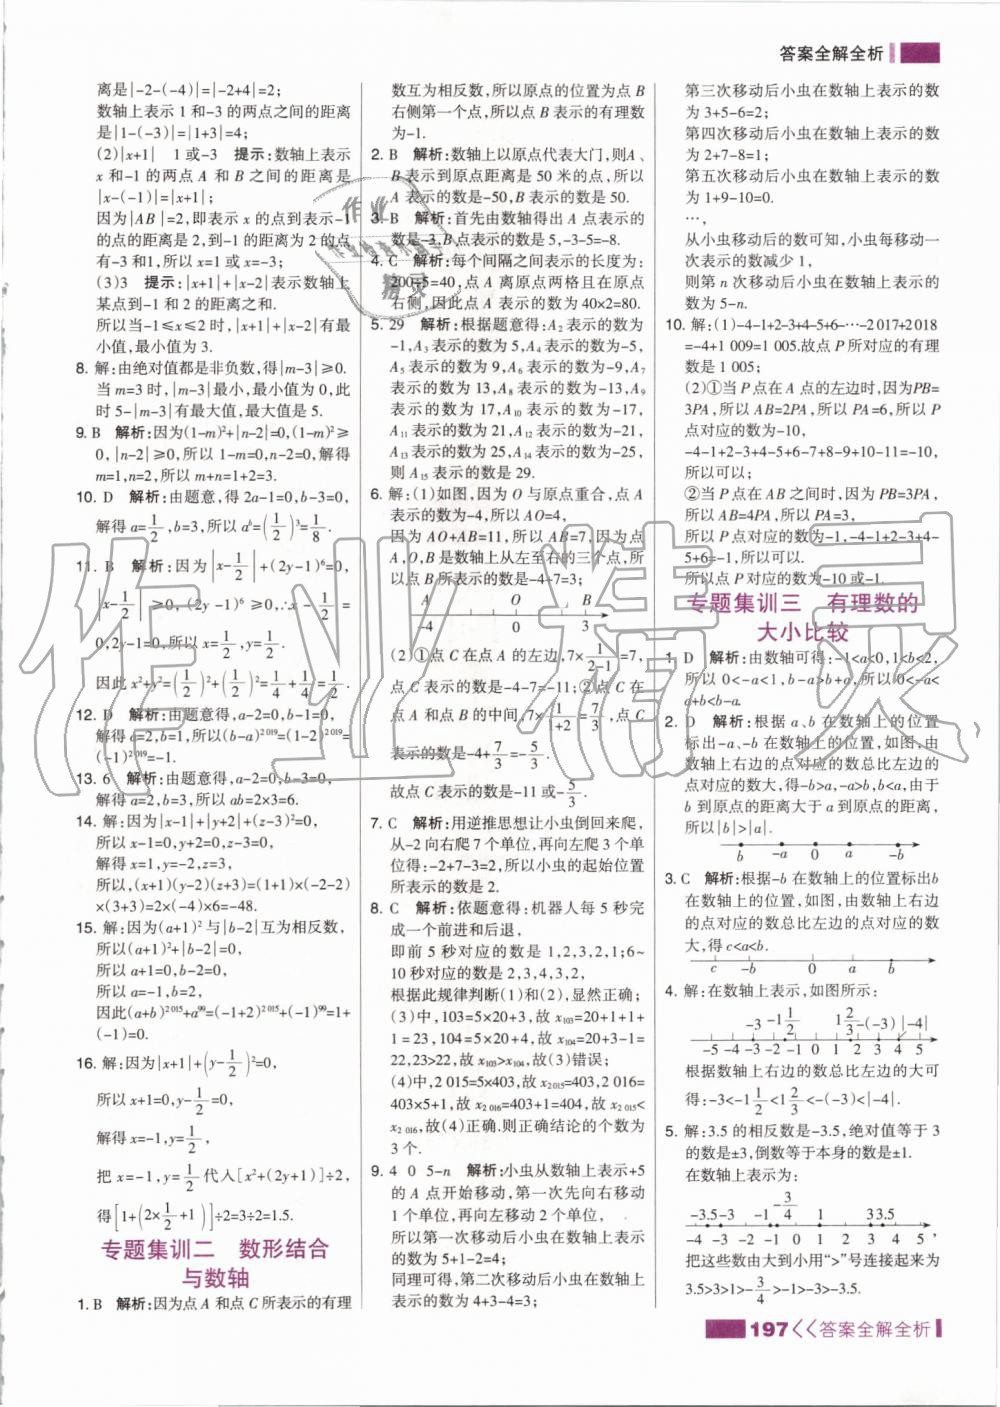 答案全解全析
离是|-2-(-4)|=|-2+4|=2;
数轴上表示 1 和-3 的两点之间的距离
是|1-(-3)|=|1+3|=4;
(2)|x+1| 1或-3 提示:数轴上表示
x 和-1 的两点 A 和 B 之间的距离是
|x-(-1)|=|x+1|;
因为|AB|=2,即表示 x 的点到表示-1
的点的距离是 2,到-1 的距离为 2 的点
有-3和1,所以 x=1 或 x=-3;
(3)3 提示:|x+1|+|x-2|表示数轴上
某点到-1 和 2 的距离之和.
所以当-1≤x≤2时,|x+1|+|x-2|有最
小值,最小值为 3.
8. 解:由绝对值都是非负数,得|m-3|≥0.
当 m=3 时,|m-3|最小,最小值为 0,此
时 5-|m-3|有最大值,最大值是 5.
9. B 解析:因为(1-m)²+|n-2|=0,(1-m)²≥
0,|n-2|≥0,所以 1-m=0,n-2=0,解得
m=1,n=2,所以 m+n=1+2=3.
10. D 解析:由题意,得 2a-1=0,b-3=0,
解得 a=1/2,b=3,所以 aᵇ=(1/2)³=1/8.
11. B 解析:因为|x-1/2|+(2y-1)⁶=0,
|x-1/2|≥0,(2y-1)⁶≥0,∴x-1/2=
0,2y-1=0,所以 x=1/2,y=1/2.
因此 x²+y²=(1/2)²+(1/2)²=1/4+1/4=1/2.
12. D 解析:由题意得,a-2=0,b-1=0,
解得 a=2,b=1,所以(b-a)²⁰¹⁹=(1-2)²⁰¹⁹=
(-1)²⁰¹⁹=-1.
13. 6 解析:由题意得,a-2=0,b-3=0,
解得 a=2,b=3,所以 ab=2×3=6.
14. 解:因为|x-1|+|y+2|+(z-3)²=0,
所以 x-1=0,y+2=0,z-3=0;
解得 x=1,y=-2,z=3,
所以,(x+1)(y-2)(z+3)=(1+1)×(-2-2)
×(3+3)=2×(-4)×6=-48.
15. 解:因为(a+1)²与|b-2|互为相反数,
所以(a+1)²+|b-2|=0,
所以 a+1=0,b-2=0,
所以 a=-1,b=2,
因此(a+b)²⁰¹⁵+a⁹⁹=(-1+2)²⁰¹⁵+(-1)⁹⁹=1+
(-1)=0.
16. 解:因为|x+1|+(y-1/2)²=0,
所以 x+1=0,y-1/2=0,
解得 x=-1,y=1/2,
把 x=-1,y=1/2代入[x²+(2y+1)]÷2,
得[1+(2×1/2+1)]÷2=3÷2=1.5.
专题集训二 数形结合
与数轴
1. B 解析:因为点 A 和点 C 所表示的有理
数互为相反数,所以原点的位置为点 B
右侧第一个点,所以点 B 表示的有理数
为-1.
2. B 解析:数轴上以原点代表大门,则A、
B 表示到原点距离是 50 米的点,所以
A 表示的数是-50,B 表示的数是 50.
3. B 解析:首先由数轴得出 A 点表示的
数是-3,B点表示的数是 5,-3-5=-8.
4. C 解析:每个间隔之间表示的长度为:
200÷5=40,点 A 离原点两格且在原点
右侧,因此点 A 表示的数为 40×2=80.
5. 29 解析:根据题意得:A₂ 表示的数为
-1,A₃ 表示的数为 5,A₄ 表示的数为-5,
A₅ 表示的数为 9,A₆ 表示的数为-9,A₇
表示的数为 13,A₈ 表示的数为-13,A₉
表示的数为 17,A₁₀ 表示的数为-17,
A₁₁ 表示的数为 21,A₁₂ 表示的数为-21,
A₁₃ 表示的数为 25,A₁₄ 表示的数为-25,
则 A₁₅ 表示的数是 29.
6. 解:(1)如图,因为 O 与原点重合,点 A
表示的数为-4,所以 AO=4,
因为 AO+AB=11,所以 AB=7,因为点
A,O,B 是数轴上从左至右的三个点,所
以点 B 所表示的数是-4+7=3;
A O B
-4 0 3
(2)①点 C 在点 A 的左边,7×1/(2-1)=7,
点 C 表示的数是-4-7=-11;②点 C 在
点 A 和点 B 的中间,7×1/(1+2)=7/3,点 C
表示的数是-4+7/3=-5/3.
故点 C 表示的数是-11 或-5/3.
7. C 解析:用逆推思想让小虫倒回来爬,
从-2 向右爬 7 个单位,再向左爬 3 个单
位得:-2+7-3=2,所以小虫的起始位置
所表示的数是 2.
8. C 解析:依题意得:机器人每 5 秒完
成一个前进和后退,
即前 5 秒对应的数是 1,2,3,2,1;6~
10 秒对应的数是 2,3,4,3,2,
根据此规律判断(1)和(2),显然正确;
(3)中,103=5×20+3,故 x₁₀₃=20+1+1+
1=23,104=5×20+4,故 x₁₀₄=20+3-1=
22,23>22,故 x₁₀₃>x₁₀₄,故(3)错误;
(4)中,2 015=5×403,故 x₂₀₁₅=403,2 016=
403×5+1,故 x₂₀₁₆=403+1=404,故 x₂₀₁₅<
x₂₀₁₆,故(4)正确.则正确结论的个数为
3 个.
9. 4 0 5-n 解析:小虫从数轴上表示+5
的 A 点开始移动,第一次先向右移动
1 个单位,再向左移动 2 个单位,
所以第一次移动后小虫在数轴上表示
的数为 5+1-2=4;
同理可得,第二次移动后小虫在数轴上
表示的数为 4+3-4=3;
第三次移动后小虫在数轴上表示的数
为 3+5-6=2;
第四次移动后小虫在数轴上表示的数
为 2+7-8=1;
第五次移动后小虫在数轴上表示的数
为 1+9-10=0.
…,
从小虫移动后的数可知,小虫每移动一
次表示的数减少 1,
则第 n 次移动后小虫在数轴上表示的
数为 5-n.
10. 解:(1)-4-1+2-3+4-5+6-…-2 017+2 018
=-4+1 009=1 005.故点 P所对应的有理
数是 1 005;
(2)①当 P点在 A 点的左边时,因为PB=
3PA,所以 AB=2PA,所以 PA=6,所以 P
点对应的数为-10,
-4-1+2-3+4-5+6-7+8-9+10-11=-10,
所以可以;
②当 P 点在 AB 之间时,因为 PB=3PA,
所以 AB=4PA,所以 PA=3,
所以 P点对应的数为-1,-4-1+2-3+4-
5+6=-1,所以可以.
所以点 P 对应的数为-10 或-1.
专题集训三 有理数的
大小比较
1. D 解析:由数轴可得:-1<a<0,1<b<2,
所以 0<-a<1,b-a>b+a,所以 0<-a<
a+b<b<b-a.
2. D 解析:根据 a、b 在数轴上的位置
标出-a、-b 在数轴上的位置,如图,由
数轴上右边的点对应的数总比左边的
点对应的数大,得-b>a,-a>b,b<a,由于
b 到原点的距离大于 a 到原点的距离,
所以|b|>|a|.
b -a 0 a -b
3. C 解析:根据-b 在数轴上的位置标出b
在数轴上的位置,如图,由数轴上右边
的点对应的数总比左边的点对应的数
大,得 c<a<b.
c -b 0 a b
4. 解:在数轴上表示,如图所示:
-3 -1 1/2 1 2/3 -(-3) |-4|
-5 -4 -3 -2 -1 0 1 2 3 4 5
根据数轴上右边的数总比左边的大可
得:-3<-1 1/2<1 2/3<-(-3)<|-4|.
5. 解:3.5 的相反数是-3.5,绝对值等于 3
的数是±3,倒数等于本身的数是±1.
在数轴上表示为:
-3.5 -3 -1 -3/4 1 3 3.5
-4 -3 -2 -1 0 1 2 3 4
把这些数由大到小用“>”号连接起来为
3.5>3>1>-3/4>-1>-3>-3.5.
197<<答案全解全析
作业精灵